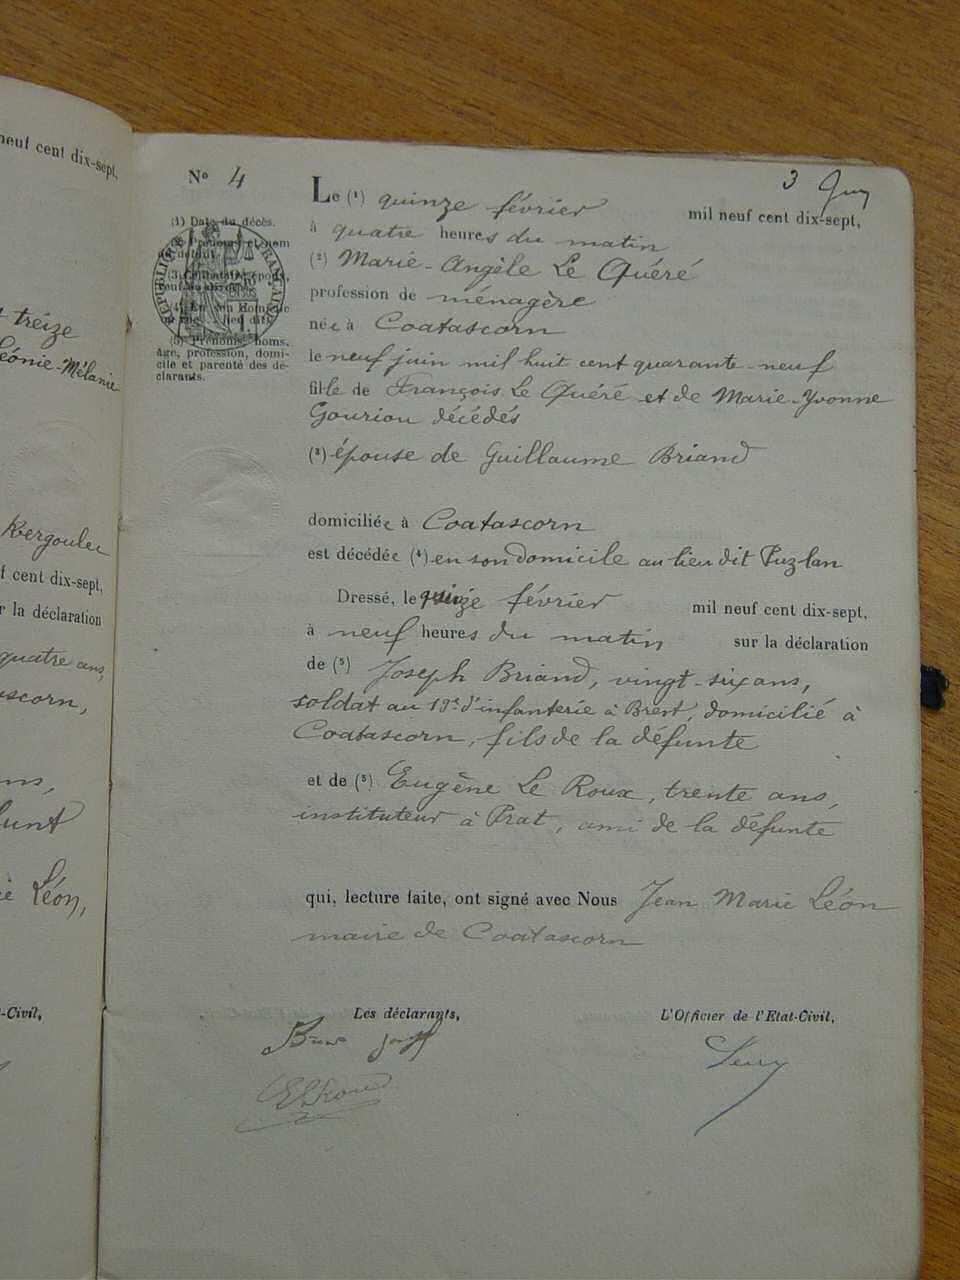 neuf cent dix-sept,
treize
Léonie-Mélanie
Kergoulec
f cent dix-sept,
r la déclaration
quatre ans,
ascorn,
ns,
funt
Léon,
-Civil,
No 4
3
(1) Date du décès.
(2) Prénoms et nom
du défunt.
(3) Célibataire, époux,
veuf ou divorcé.
(4) En son domicile
lieu dit
(5) Prénoms, noms,
âge, profession, domi-
cile et parenté des dé-
clarants.
RÉPUBLIQUE FRANÇAISE
Le (1) quinze février mil neuf cent dix-sept,
à quatre heures du matin
(2) Marie-Angèle Le Quéré
profession de ménagère
née à Coatascorn
le neuf juin mil huit cent quarante-neuf
fille de François Le Quéré et de Marie-Yvonne
Gouriou décédés
(3) épouse de Guillaume Briand
domiciliée à Coatascorn
est décédée (4) en son domicile au lieu dit Puzlan
Dressé, le quinze février mil neuf cent dix-sept,
à neuf heures du matin sur la déclaration
de (5) Joseph Briand, vingt-six ans,
soldat au 19e d'infanterie à Brest, domicilié à
Coatascorn, fils de la défunte
et de (5) Eugène Le Roux, trente ans,
instituteur à Prat, ami de la défunte
qui, lecture faite, ont signé avec Nous Jean Marie Léon
maire de Coatascorn
Les déclarants,
L'Officier de l'Etat-Civil,
ELeRoux
Léon